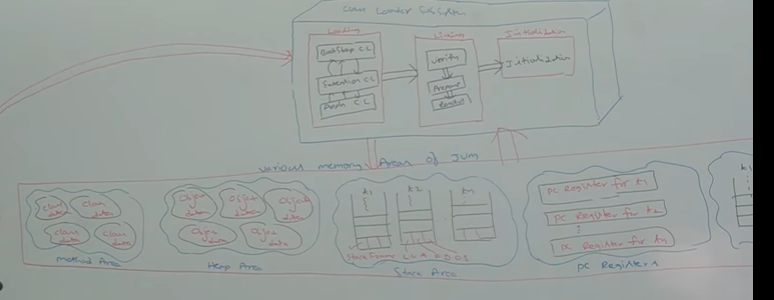 Class Loader SubSystem
Loading
BootStrap C.L
Extension C.L
Applin C.L
Linking
verify
Prepare
Resolve
Initialization
Initialization
various memory Areas of JVM
class data
class data
class data
class data
method Area
Object data
Object data
Object data
Object data
Object data
Heap Area
t1
t2
tn
Stack Frame
L V A
O S
Stack Area
PC Register for t1
PC Register for t2
PC Register for tn
PC Registers